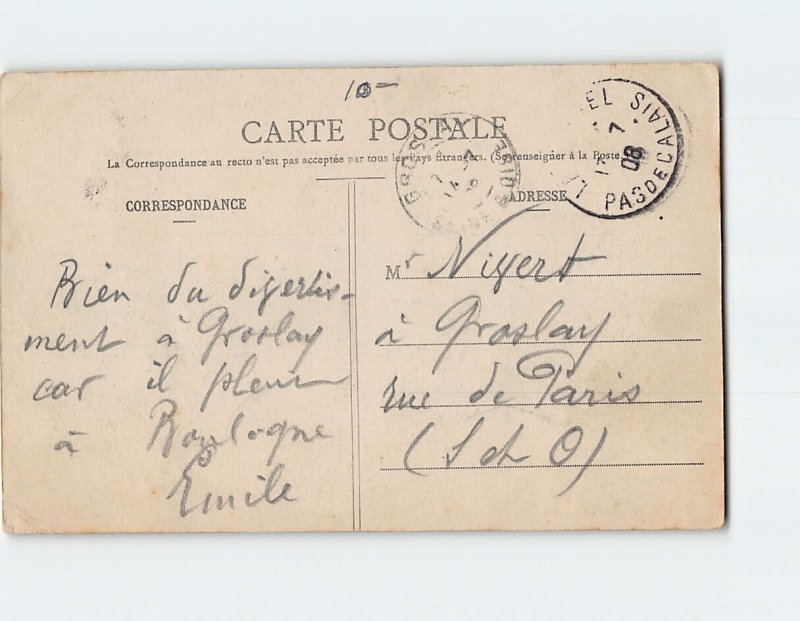 10-
CARTE POSTALE
La Correspondance au recto n'est pas acceptée par tous les Pays Étrangers. (Se renseigner à la Poste
CORRESPONDANCE
ADRESSE
Bien du divertis-
ment à Groslay
car il pleut
à Boulogne
Emile
Mr Nivert
à Groslay
rue de Paris
(S et O)
7
08
PAS DE CALAIS